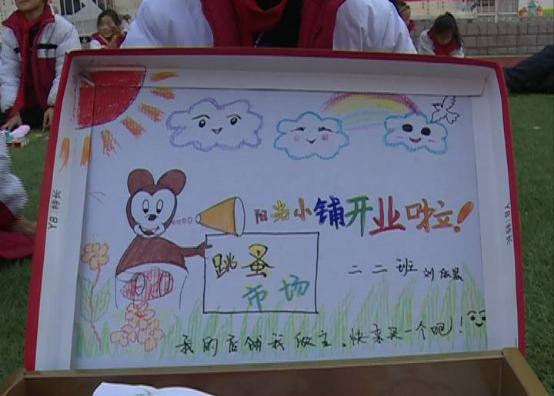 阳光小铺开业啦!
跳蚤
市场
二二班 刘
我的店铺我做主,快来买一个吧!
YB 特长
YB 特长